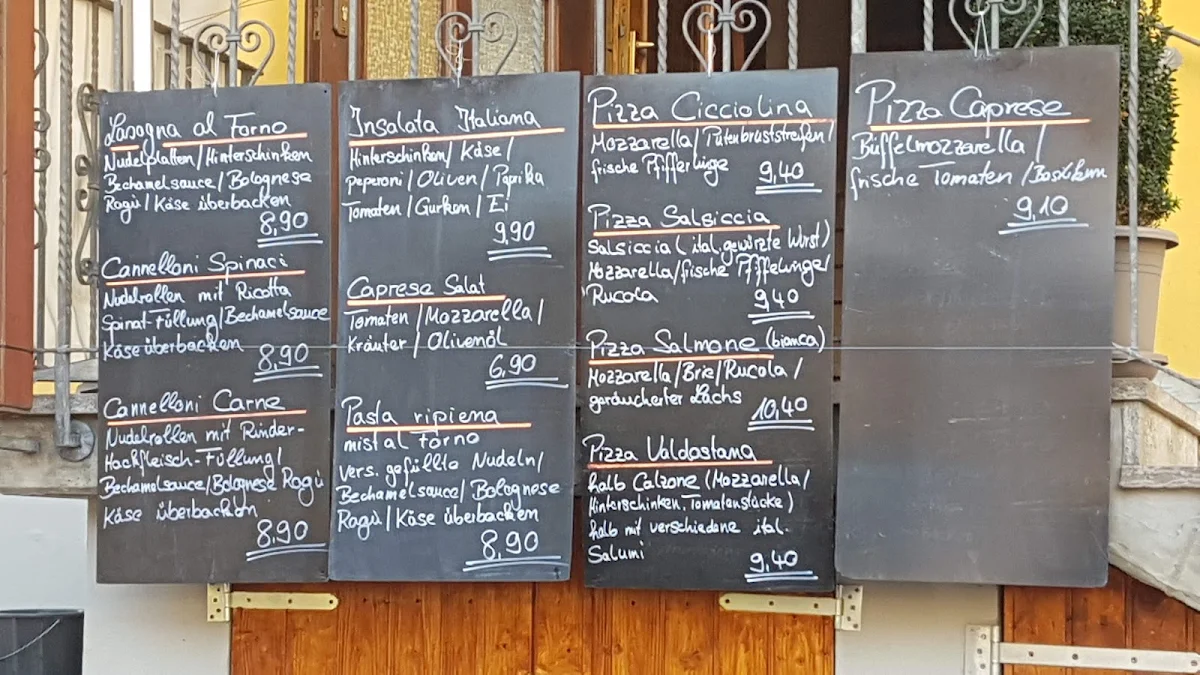 Lasagna al Forno
Nudelplatten/Hinterschinken
Bechamelsauce/Bolognese
Ragù/Käse überbacken
8,90
Cannelloni Spinaci
Nudelrollen mit Ricotta
Spinat-Füllung/Bechamelsauce
Käse überbacken
8,90
Cannelloni Carne
Nudelrollen mit Rinder-
Hackfleisch-Füllung/
Bechamelsauce/Bolognese Ragù
Käse überbacken
8,90
Insalata Italiana
Hinterschinken/Käse/
Peperoni/Oliven/Paprika
Tomaten/Gurken/Ei
9,90
Caprese Salat
Tomaten/Mozzarella/
Kräuter/Olivenöl
6,90
Pasta ripiena
mist al Forno
vers. gefüllte Nudeln/
Bechamelsauce/Bolognese
Ragù/Käse überbacken
8,90
Pizza Cicciolina
Mozzarella/Putenbruststreifen/
frische Pfifferlinge
9,40
Pizza Salsiccia
Salsiccia (ital. gewürzte Wurst)
Mozzarella/frische Pfifferlinge/
Rucola
9,40
Pizza Salmone (bianca)
Mozzarella/Brie/Rucola/
geräucherter Lachs
10,40
Pizza Valdostana
halb Calzone (Mozzarella/
Hinterschinken, Tomatenstücke)
halb mit verschiedene ital.
Salumi
9,40
Pizza Caprese
Büffelmozzarella/
frische Tomaten/Basilikum
9,10